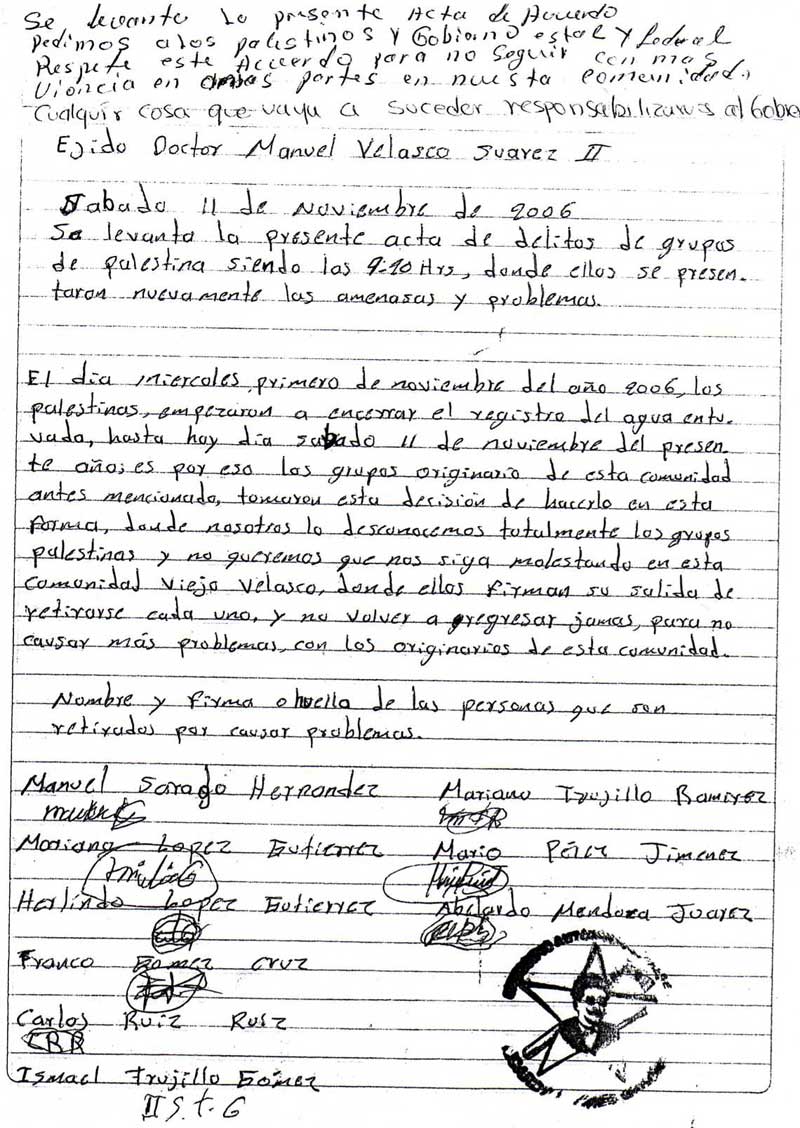 Se levanto la presente Acta de Acuerdo
Pedimos a los palestinos y Gobiano estal y federal
Respete este Acuerdo para no seguir con mas
Violncia en ambas partes en nuesta comunidad.
Cualquir cosa que vaya a suceder responsabilizamos al Gobie
Ejido Doctor Manuel Velasco Suarez II
Sabado 11 de noviembre de 2006
Se levanta la presente acta de delitos de grupos
de palestina siendo las 9:20 Hrs, donde ellos se presen-
taron nuevamente las amenasas y problemas.
El dia miercoles, primero de noviembre del año 2006, los
palestinas, empezaron a encerrar el registro del agua entu-
vada, hasta hoy dia sabado 11 de noviembre del presen-
te año; es por eso los grupos originario de esta comunidad
antes mencionado, tomaron esta decisión de hacerlo en esta
forma, donde nosotros lo desconocemos totalmente los grupos
palestinas y no queremos que nos siga molestando en esta
comunidad Viejo Velasco, donde ellos firman su salida de
retirarse cada uno, y no volver a gregresar jamas, para no
causar más problemas, con los originarios de esta comunidad.
Nombre y firma o huella de las personas que son
retirados por causar problemas.
Manuel Sarago Hernandez Mariano Trujillo Ramirez
Mariano Lopez Gutierrez Mario Pérez Jimenez
Herlindo Lopez Gutierrez Abelardo Mendoza Juarez
Franco Gomez Cruz
Carlos Ruiz Ruiz
CRR
Ismael Trujillo Gómez
II S.t.G